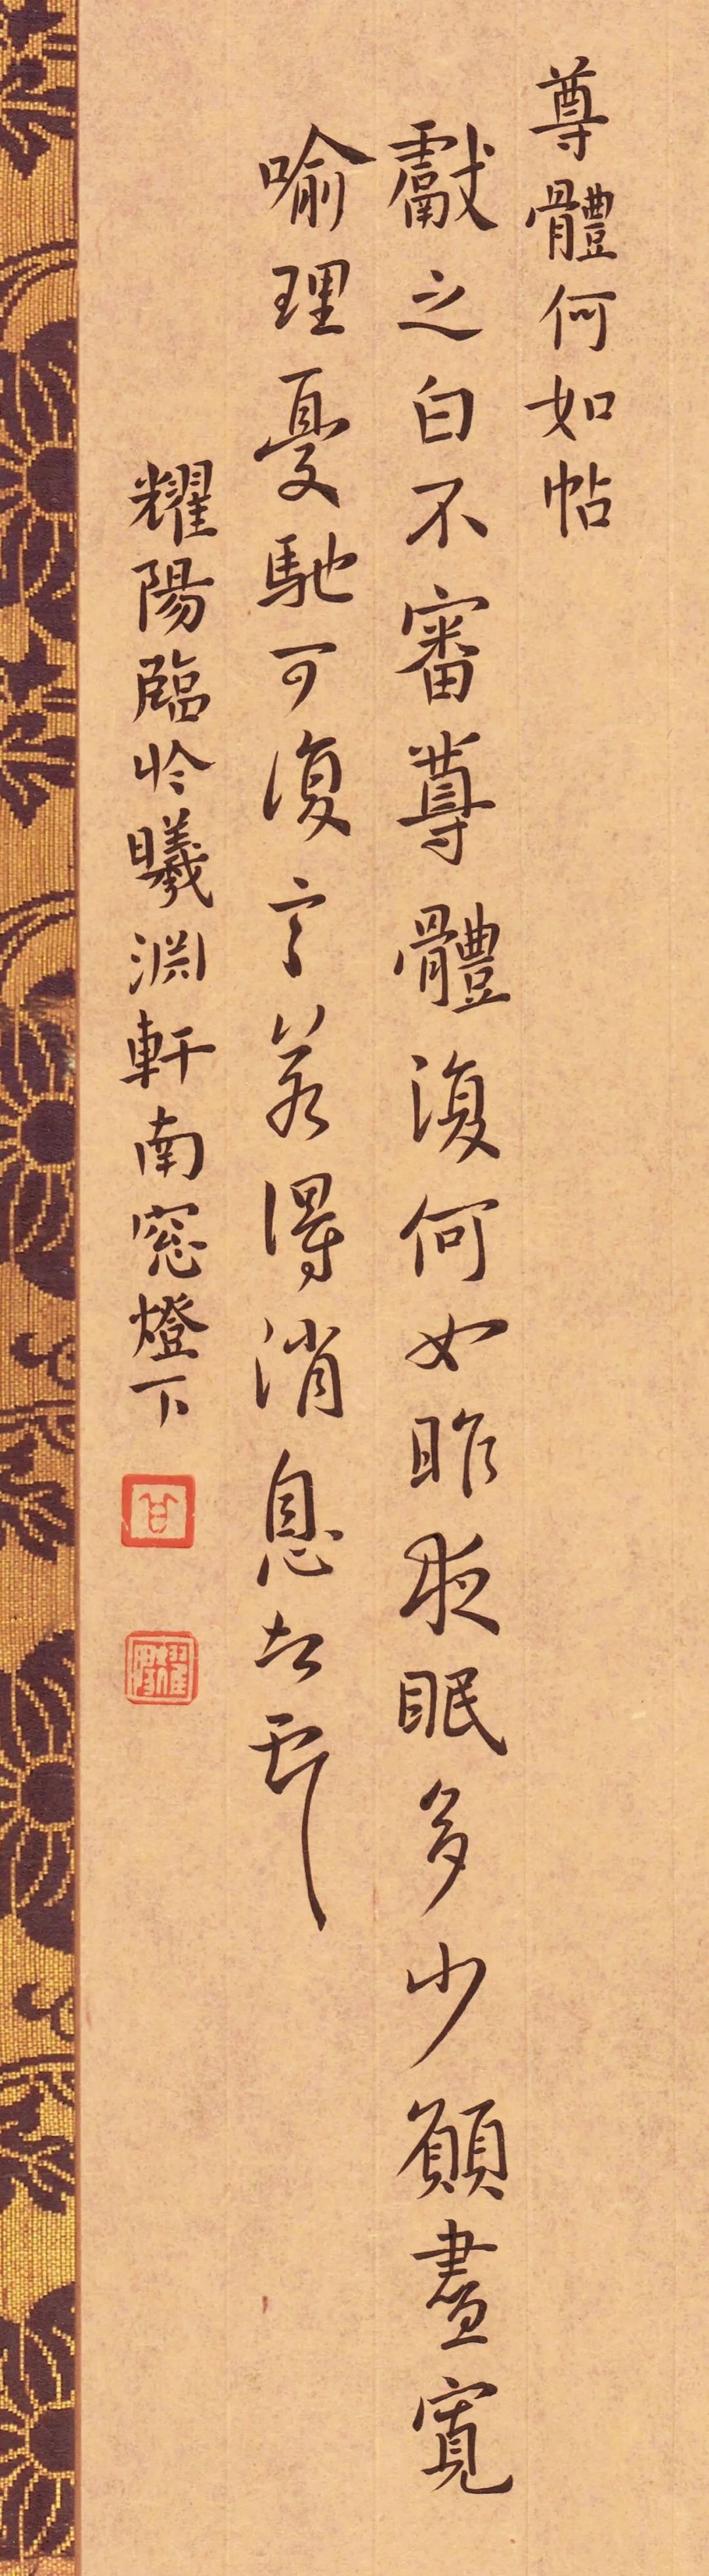 尊體何如帖
獻之白不審尊體復何如昨夜眠多少願晝寬
喻理憂馳可復言若得消息告
耀陽臨於曦淵軒南窓燈下
甘
耀陽